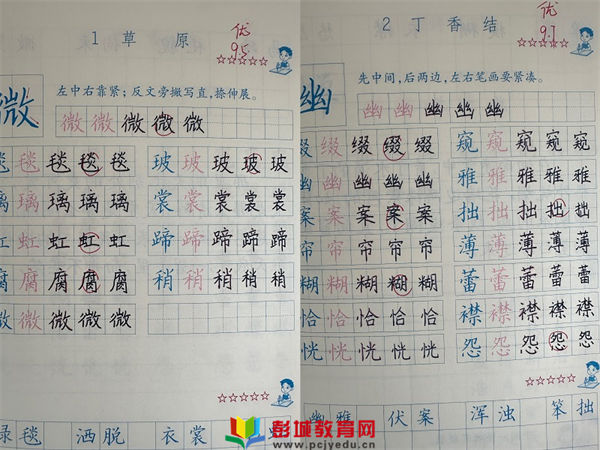 优
9.5
1 草 原
左中右靠紧；反文旁撇写直，捺伸展。
微 微 微 微 微 微
毯 毯 毯 毯 毯 玻 玻 玻 玻 玻
璃 璃 璃 璃 璃 裳 裳 裳 裳 裳
虹 虹 虹 虹 蹄 蹄 蹄 蹄 蹄
腐 腐 腐 腐 腐 稍 稍 稍 稍 稍
微 微 微 微 微
绿 毯 洒 脱 衣 裳
优
2 丁 香 结
先中间，后两边，左右笔画要紧凑。
幽 幽 幽 幽 幽 幽
缀 缀 缀 缀 缀 窥 窥 窥 窥 窥
幽 幽 幽 幽 幽 雅 雅 雅 雅 雅
案 案 案 案 案 拙 拙 拙 拙 拙
帘 帘 帘 帘 帘 薄 薄 薄 薄 薄
糊 糊 糊 糊 糊 蕾 蕾 蕾 蕾 蕾
恰 恰 恰 恰 恰 襟 襟 襟 襟 襟
恍 恍 恍 恍 恍 怨 怨 怨 怨 怨
幽 雅 伏 案 浑 浊 笨 拙
彭城教育网
www.pcjyedu.cn